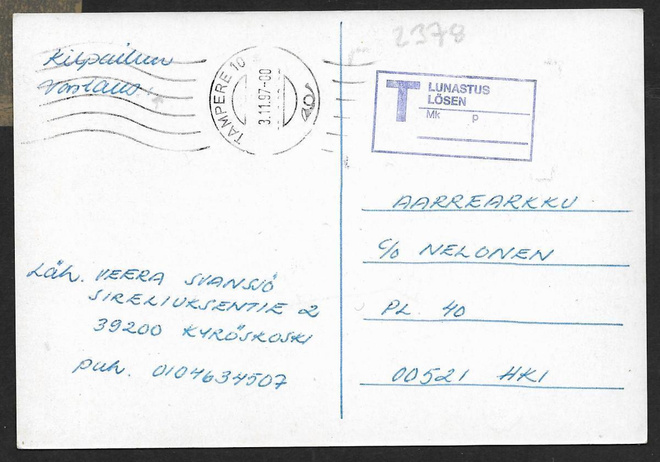 2378
Kilpailun
vastaus
TAMPERE 10
3.11.97-00
T LUNASTUS
LÖSEN
Mk p
AARREARKKU
c/o NELONEN
PL 40
00521 HKI
Läh. VEERA SVANSJÖ
SIRELIUKSENTIE 2
39200 KYRÖSKOSKI
puh. 0104634507